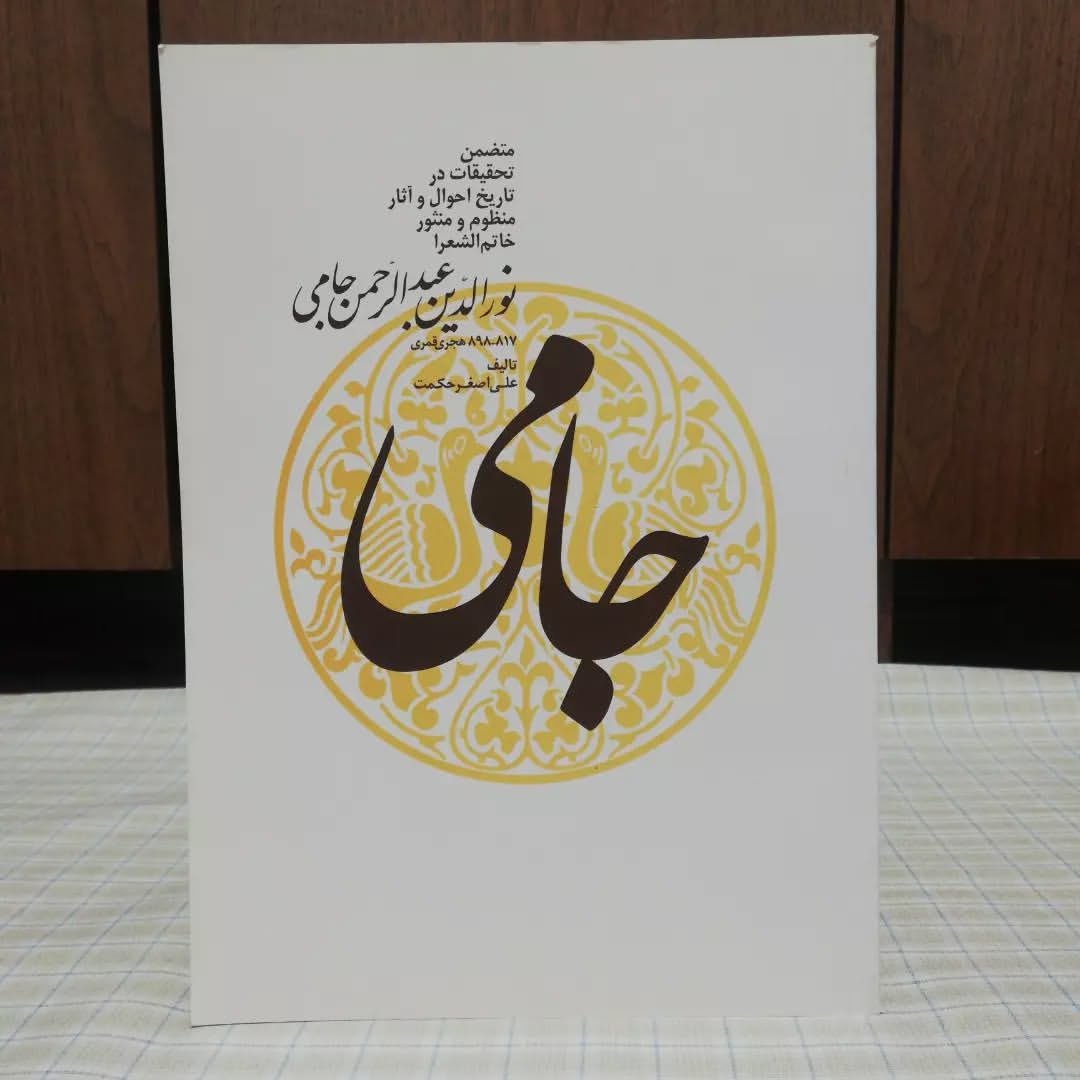 متضمن
تحقیقات در
تاریخ احوال و آثار
منظوم و منثور
خاتم‌الشعرا
نورالدّین عبدالرّحمن جامی
۸۱۷-۸۹۸ هجری‌قمری
تالیف
علی‌اصغر حکمت
جامی